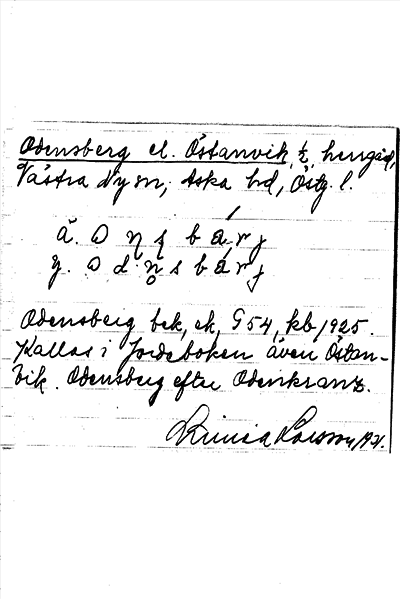 Odensberg el. Östanvik, ½, herrgård,
Västra Ny sn, Aska hd, Östg. l.
ä. o n s b á r j
y. o d n̥ s b á r j
Odensberg bek, ek, G 54, kb 1925.
Kallas i Jordeboken även Östan-
vik. Odensberg efter Odenkranz.
Linnea Larsson